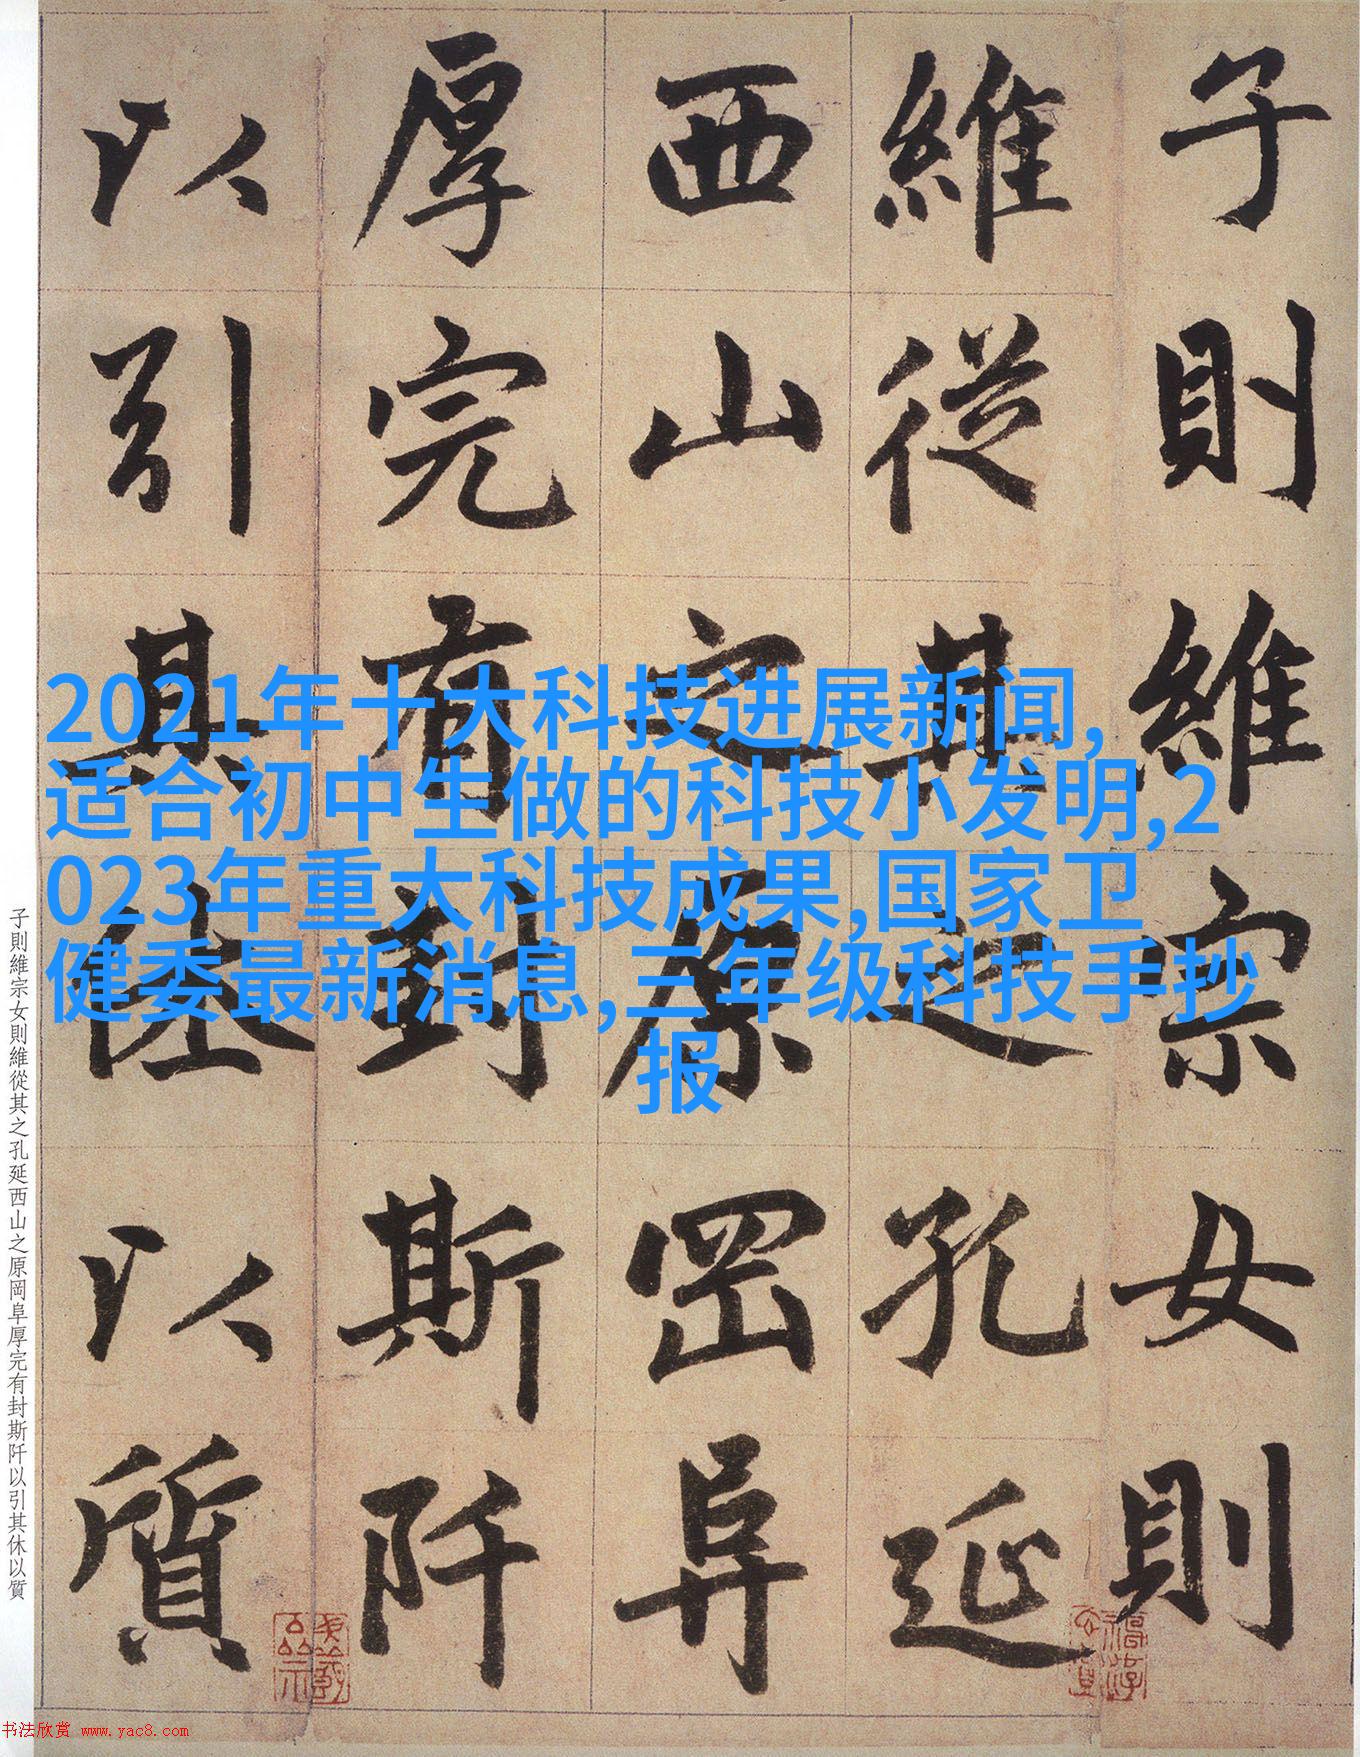 子則維宗女則
維從其之孔延
西山之原岡阜
厚完有封斯阡
以引其休以質
2021年十大科技进展新闻,
适合初中生做的科技小发明,2
023年重大科技成果,国家卫
健委最新消息,三年级科技手抄
报
子則維宗女則維從其之孔延西山之原岡阜厚完有封斯阡以引其休以質
书法欣赏 www.yac8.com